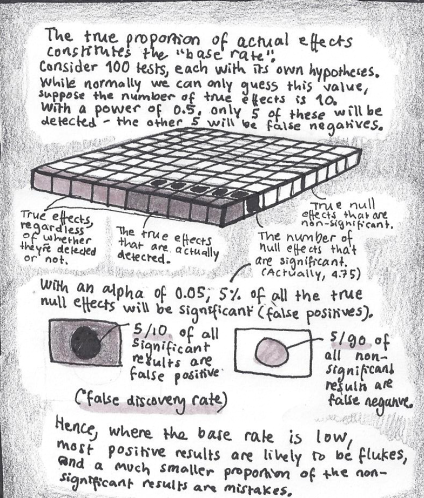 The true proportion of actual effects
constitutes the "base rate".
Consider 100 tests, each with its own hypotheses.
While normally we can only guess this value,
suppose the number of true effects is 10.
With a power of 0.5, only 5 of these will be
detected - the other 5 will be false negatives.
True effects,
regardless
of whether
they're detected
or not.
The true effects
that are actually
detected.
The number of
null effects that
are significant.
(Actually, 4.75)
True null
effects that are
non-significant.
With an alpha of 0.05, 5% of all the true
null effects will be significant (false positives).
5/10 of all
significant
results are
false positive
(false discovery rate)
5/90 of
all non-
significant
results are
false negative.
Hence, where the base rate is low,
most positive results are likely to be flukes,
and a much smaller proportion of the non-
significant results are mistakes.